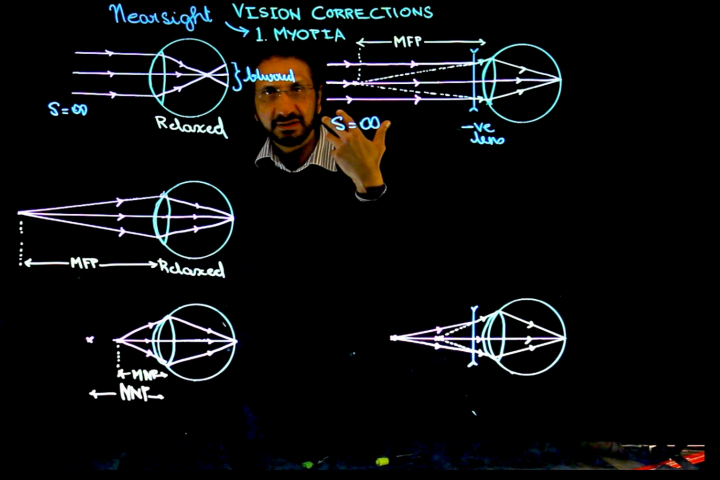 Nearsight VISION CORRECTIONS
1. MYOPIA
MFP
} blurred
S = ∞
Relaxed
S = ∞
-ve
lens
MFP
Relaxed
MNP
NNP